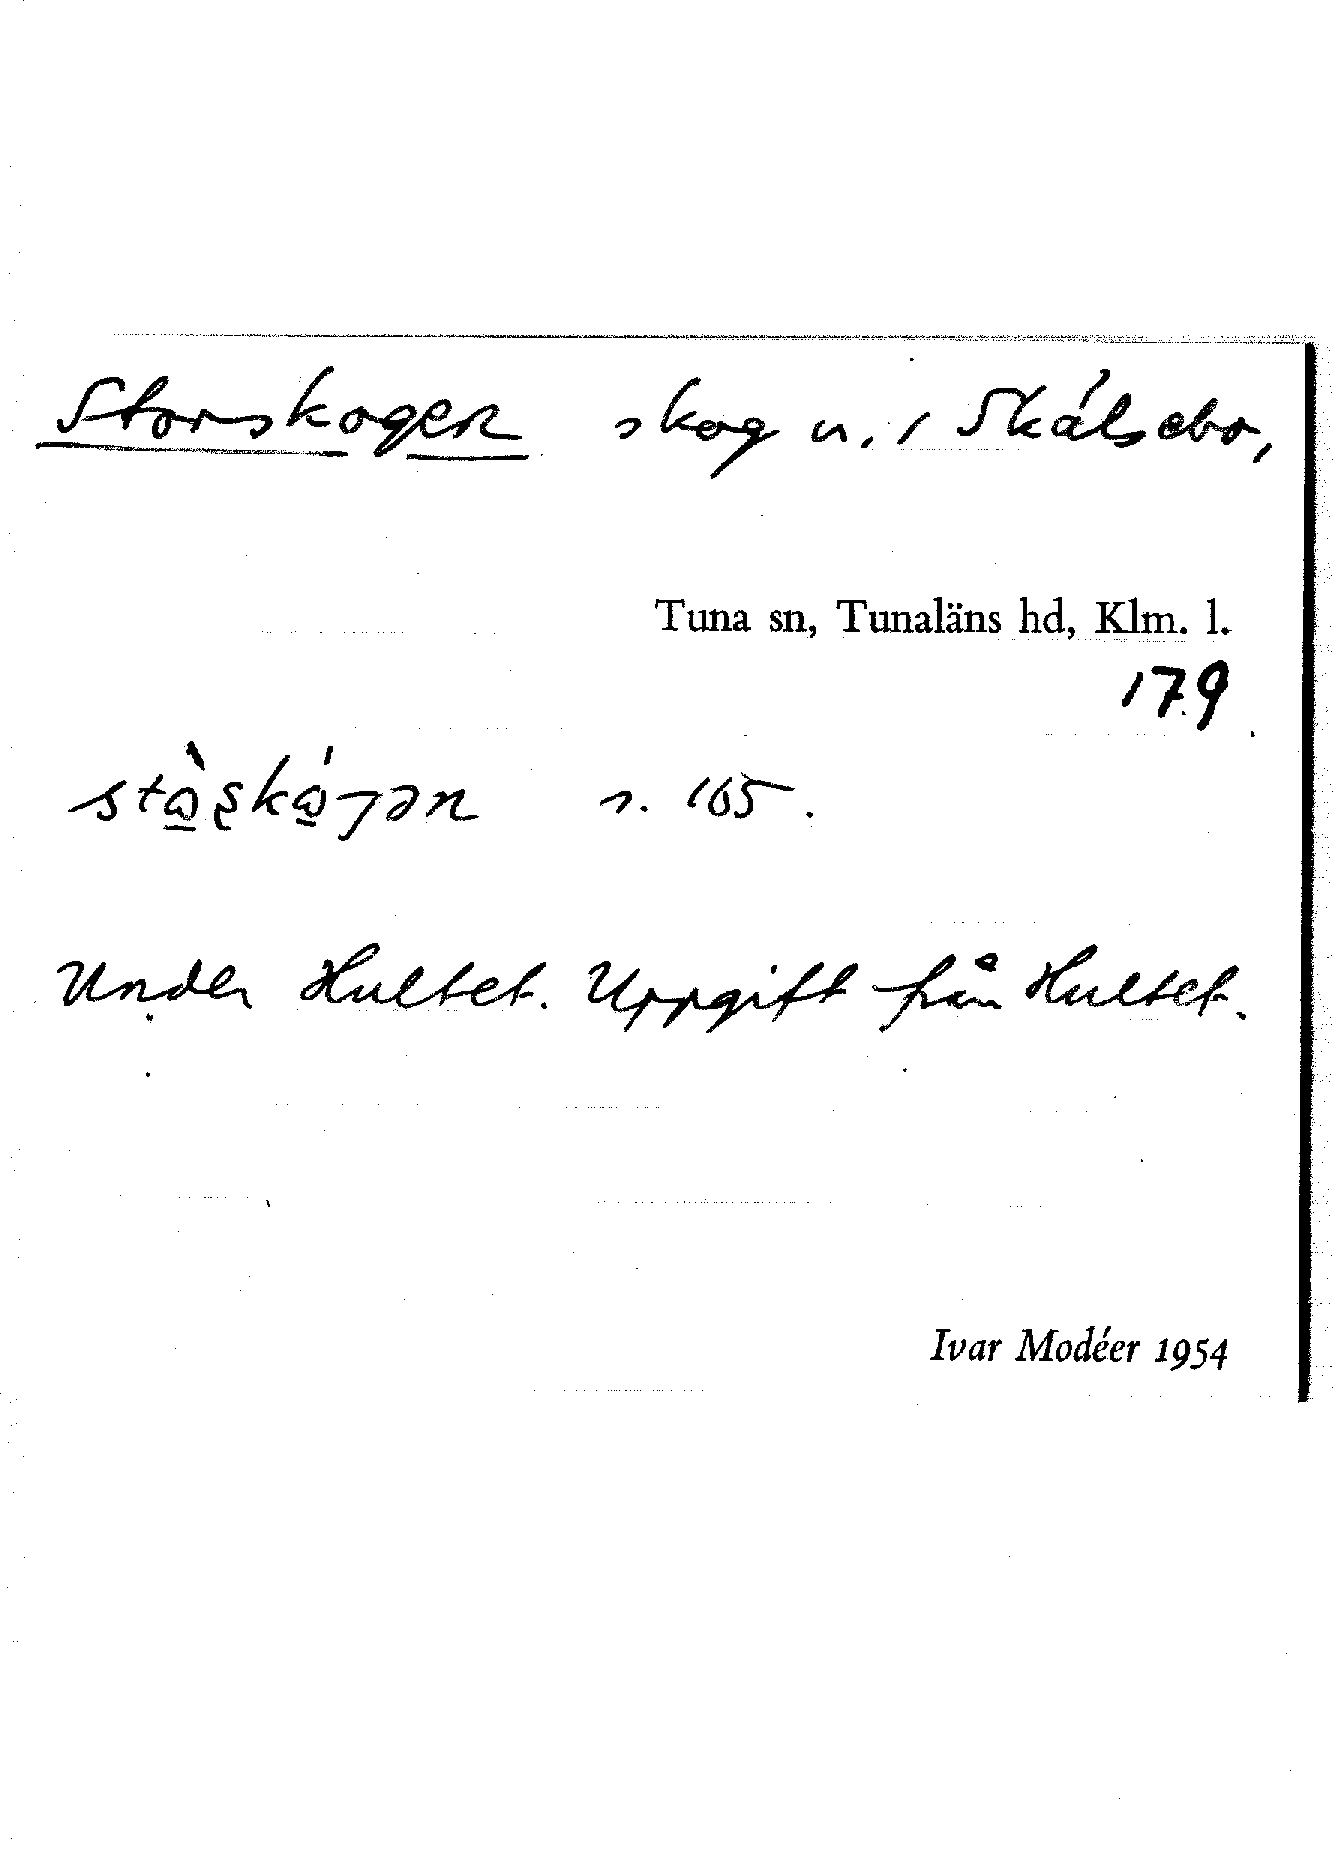 Storskogen skog u. 1 Skälsebo,
Tuna sn, Tunaläns hd, Klm. l.
179
s. 165.
Under Hultet. Uppgift från Hultet.
Ivar Modéer 1954